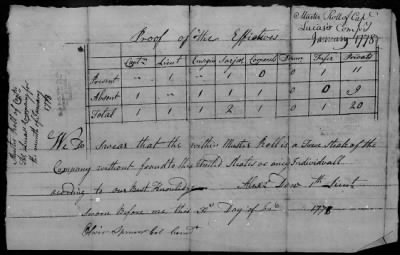 Muster Roll of Capt.
Lucas's Comp'y
January 1778
Proof of the Effectives
Capt. Lieut Ensigns Sarjts Corporals Drum Fifer Privates
Present " 1 1 1 0 1 11
Absent 1 1 1 0 9
Total 1 1 1 2 1 1 20
We Do Swear that the within Muster Roll is a True State of the
Company without fraud to the United States or any Individuall
acording to our Best Knowledge
Lieut
Sworn Before me this Day of 1778
Oliver Spencer Col
Muster Roll of Capt.
Lucas's Company for
the month of January
1778